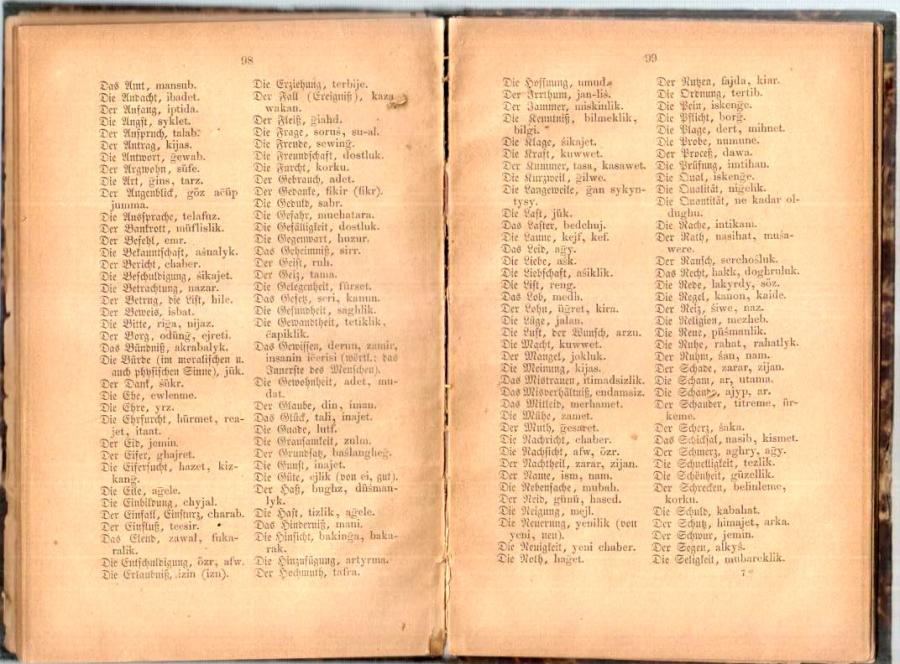 98
Das Amt, mansub.
Die Andacht, ibadet.
Der Anfang, iptida.
Die Angst, syklet.
Der Anspruch, talab.
Der Antrag, kijas.
Die Antwort, ǧewab.
Der Argwohn, süfe.
Die Art, ǧins, tarz.
Der Augenblick, göz ačüp
jumma.
Die Aussprache, telafuz.
Der Bankrott, müflislik.
Der Befehl, emr.
Die Bekanntschaft, ašnalyk.
Der Bericht, chaber.
Die Beschuldigung, šikajet.
Die Betrachtung, nazar.
Der Betrug, die List, hile.
Der Beweis, isbat.
Die Bitte, riǧa, nijaz.
Der Borg, odünǧ, ejreti.
Das Bündniß, akrabalyk.
Die Bürde (im moralischen u.
auch physischen Sinne), jük.
Der Dank, šükr.
Die Ehe, ewlenme.
Die Ehre, yrz.
Die Ehrfurcht, hürmet, rea-
jet, itaat.
Der Eid, jemin.
Der Eifer, ghajret.
Die Eifersucht, hazet, kiz-
kanǧ.
Die Eile, aǧele.
Die Einbildung, chyjal.
Der Einfall, Einsturz, charab.
Der Einfluß, teesir.
Das Elend, zawal, fuka-
ralik.
Die Entschuldigung, özr, afw.
Die Erlaubniß, izin (izn).
Die Erziehung, terbije.
Der Fall (Ereigniß), kaza
wakan.
Der Fleiß, ǧiahd.
Die Frage, soruš, su-al.
Die Freude, sewinǧ.
Die Freundschaft, dostluk.
Die Furcht, korku.
Der Gebrauch, adet.
Der Gedanke, fikir (fikr).
Die Geduld, sabr.
Die Gefahr, muchatara.
Die Gefälligkeit, dostluk.
Die Gegenwart, huzur.
Das Geheimniß, sirr.
Der Geist, ruh.
Der Geiz, tama.
Die Gelegenheit, fürset.
Das Gesetz, seri, kanun.
Die Gesundheit, saghlik.
Die Gewandtheit, tetiklik,
čapiklik.
Das Gewissen, derun, zamir,
insanin ičerisi (wörtl.: das
Innerste des Menschen).
Die Gewohnheit, adet, mu-
dat.
Der Glaube, din, iman.
Das Glück, tali, inajet.
Die Gnade, lutf.
Die Grausamkeit, zulm.
Der Grundsatz, bašlangheǧ.
Die Gunst, inajet.
Die Güte, ejlik (von ei, gut).
Der Haß, bughz, düšman-
lyk.
Die Hast, tizlik, aǧele.
Das Hinderniß, mani.
Die Hinsicht, bakinǧa, baka-
rak.
Die Hinzufügung, artyrma.
Der Hochmuth, tafra.
99
Die Hoffnung, umud.
Der Irrthum, jan-liš.
Der Jammer, miskinlik.
Die Kenntniß, bilmeklik,
bilgi.
Die Klage, šikajet.
Die Kraft, kuwwet.
Der Kummer, tasa, kasawet.
Die Kurzweil, ǧilwe.
Die Langeweile, ǧan sykyn-
tysy.
Die Last, jük.
Das Laster, bedchuj.
Die Laune, kejf, kef.
Das Leid, aǧy.
Die Liebe, ašk.
Die Liebschaft, ašiklik.
Die List, reng.
Das Lob, medh.
Der Lohn, üǧret, kira.
Die Lüge, jalan.
Die Lust, der Wunsch, arzu.
Die Macht, kuwwet.
Der Mangel, jokluk.
Die Meinung, kijas.
Das Mistrauen, itimadsizlik.
Das Misverhältniß, endamsiz.
Das Mitleid, merhamet.
Die Mühe, zamet.
Der Muth, ǧesaret.
Die Nachricht, chaber.
Die Nachsicht, afw, özr.
Der Nachtheil, zarar, zijan.
Der Name, ism, nam.
Die Nebensache, mubah.
Der Neid, günü, hased.
Die Neigung, mejl.
Die Neuerung, yenilik (von
yeni, neu).
Die Neuigkeit, yeni chaber.
Die Noth, haǧet.
Der Nutzen, fajda, kiar.
Die Ordnung, tertib.
Die Pein, iskenǧe.
Die Pflicht, borǧ.
Die Plage, dert, mihnet.
Die Probe, numune.
Der Proceß, dawa.
Die Prüfung, imtihan.
Die Qual, iskenǧe.
Die Qualität, niǧelik.
Die Quantität, ne kadar ol-
dughu.
Die Rache, intikam.
Der Rath, nasihat, muša-
were.
Der Rausch, serchošluk.
Das Recht, hakk, doghruluk.
Die Rede, lakyrdy, söz.
Die Regel, kanon, kaide.
Der Reiz, šiwe, naz.
Die Religion, mezheb.
Die Reue, püšmanlik.
Die Ruhe, rahat, rahatlyk.
Der Ruhm, šan, nam.
Der Schade, zarar, zijan.
Die Scham, ar, utama.
Die Schande, ajyp, ar.
Der Schauder, titreme, ür-
keme.
Der Scherz, šaka.
Das Schicksal, nasib, kismet.
Der Schmerz, aghry, aǧy.
Die Schnelligkeit, tezlik.
Die Schönheit, güzellik.
Der Schrecken, belinleme,
korku.
Die Schuld, kabahat.
Der Schutz, himajet, arka.
Der Schwur, jemin.
Der Segen, alkyš.
Die Seligkeit, mubareklik.
7*